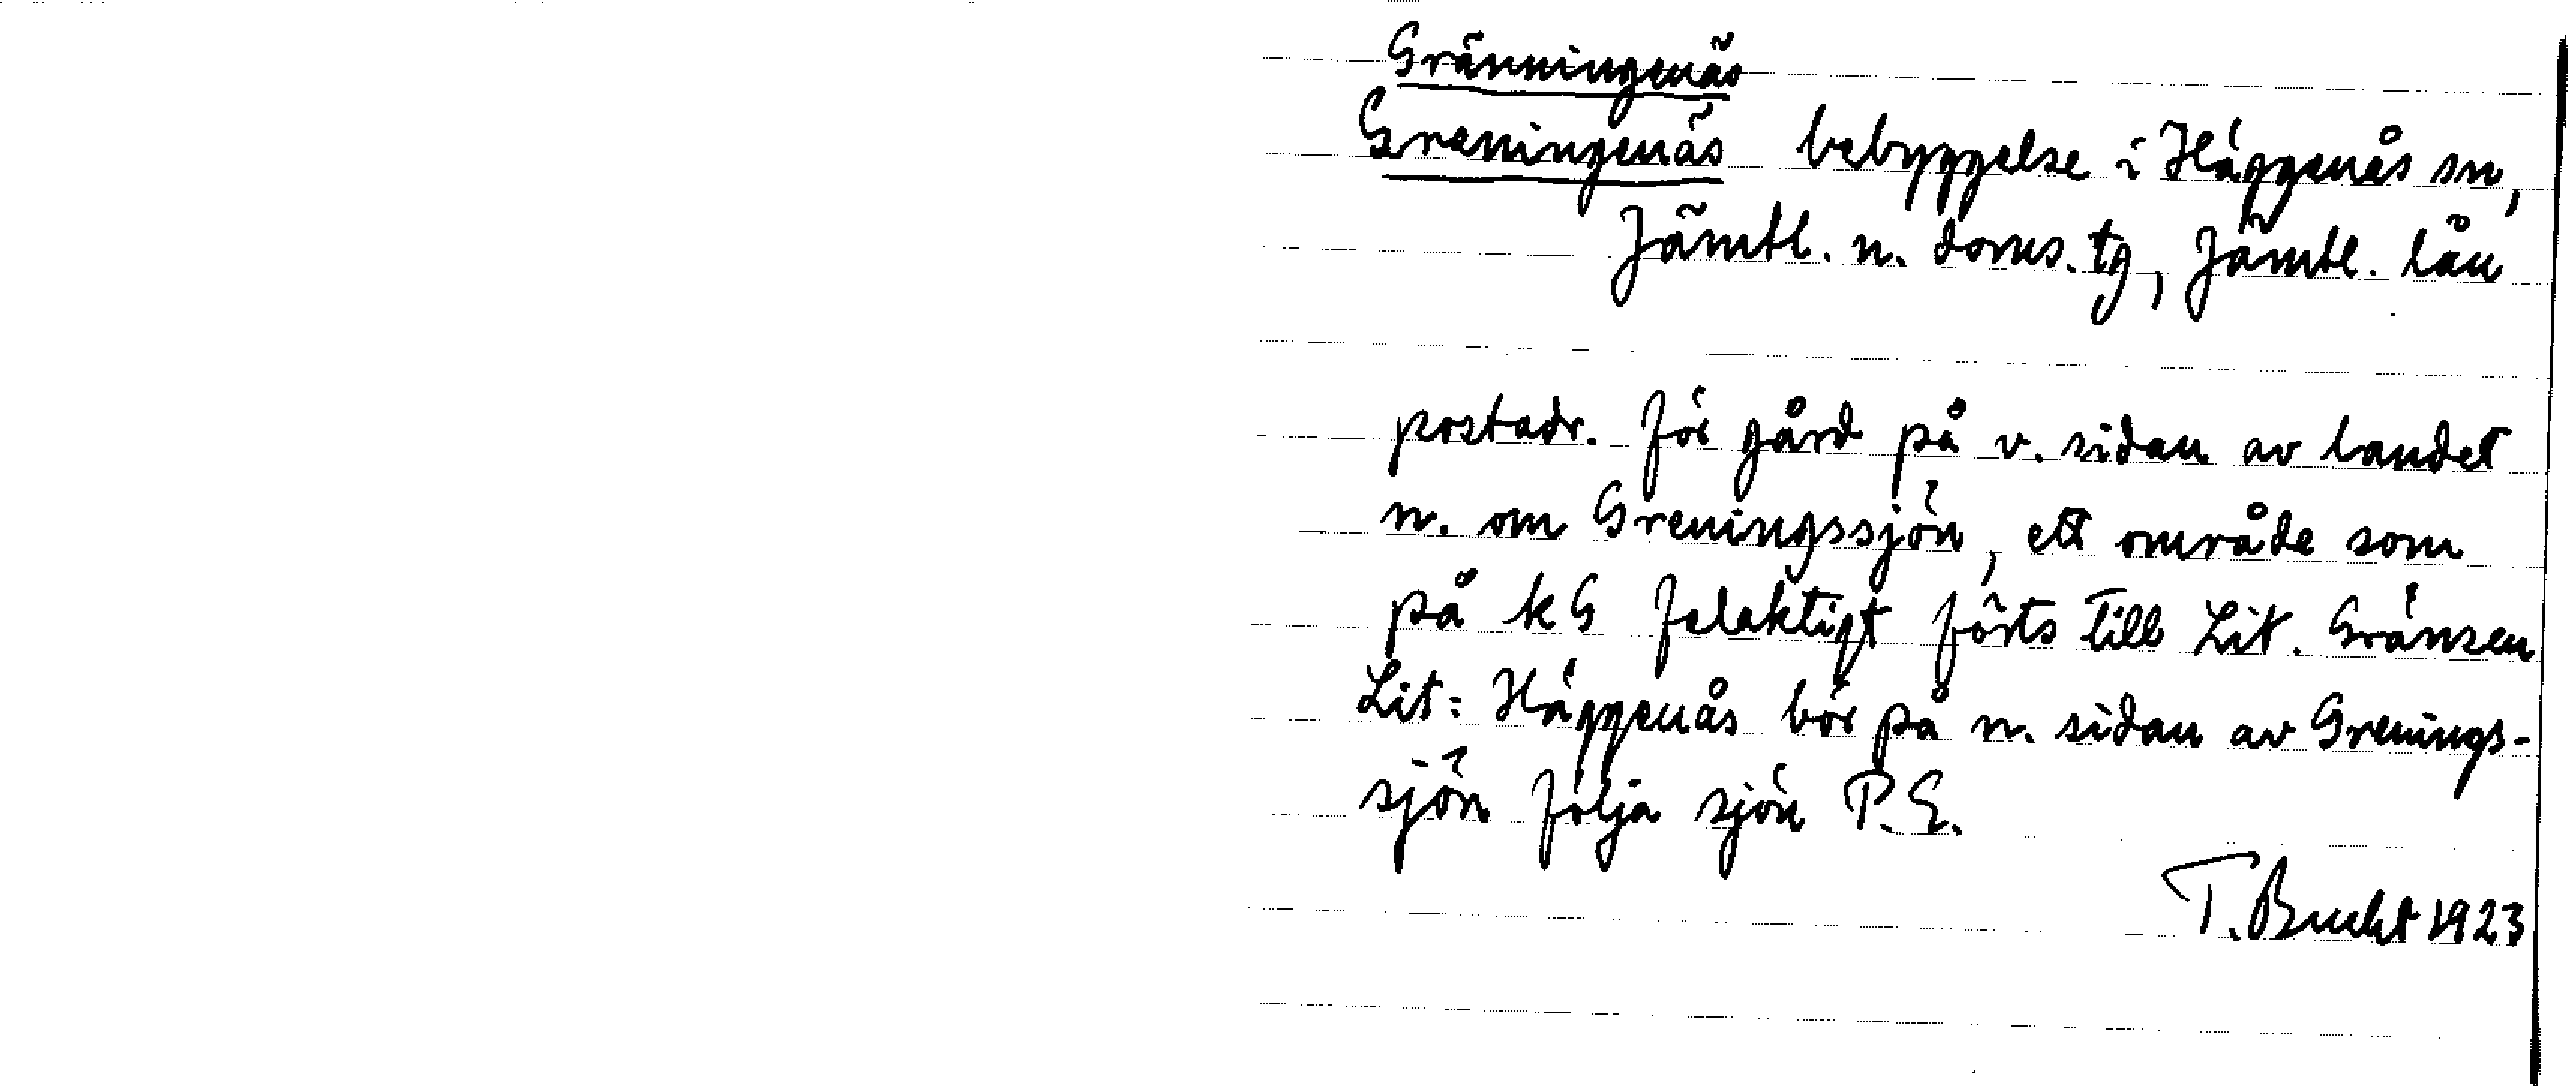 Gränningenäs
Greningenäs bebyggelse i Häggenås sn,
Jämtl. n. doms. tg, Jämtl. län
postadr. för gård på v. sidan av landet
n. om Greningssjön, ett område som
på kG felaktigt förts till Lit. Gränsen
Lit: Häggenås bör på n. sidan av Grenings-
sjön följa sjön P.E.
T. Bucht 1923